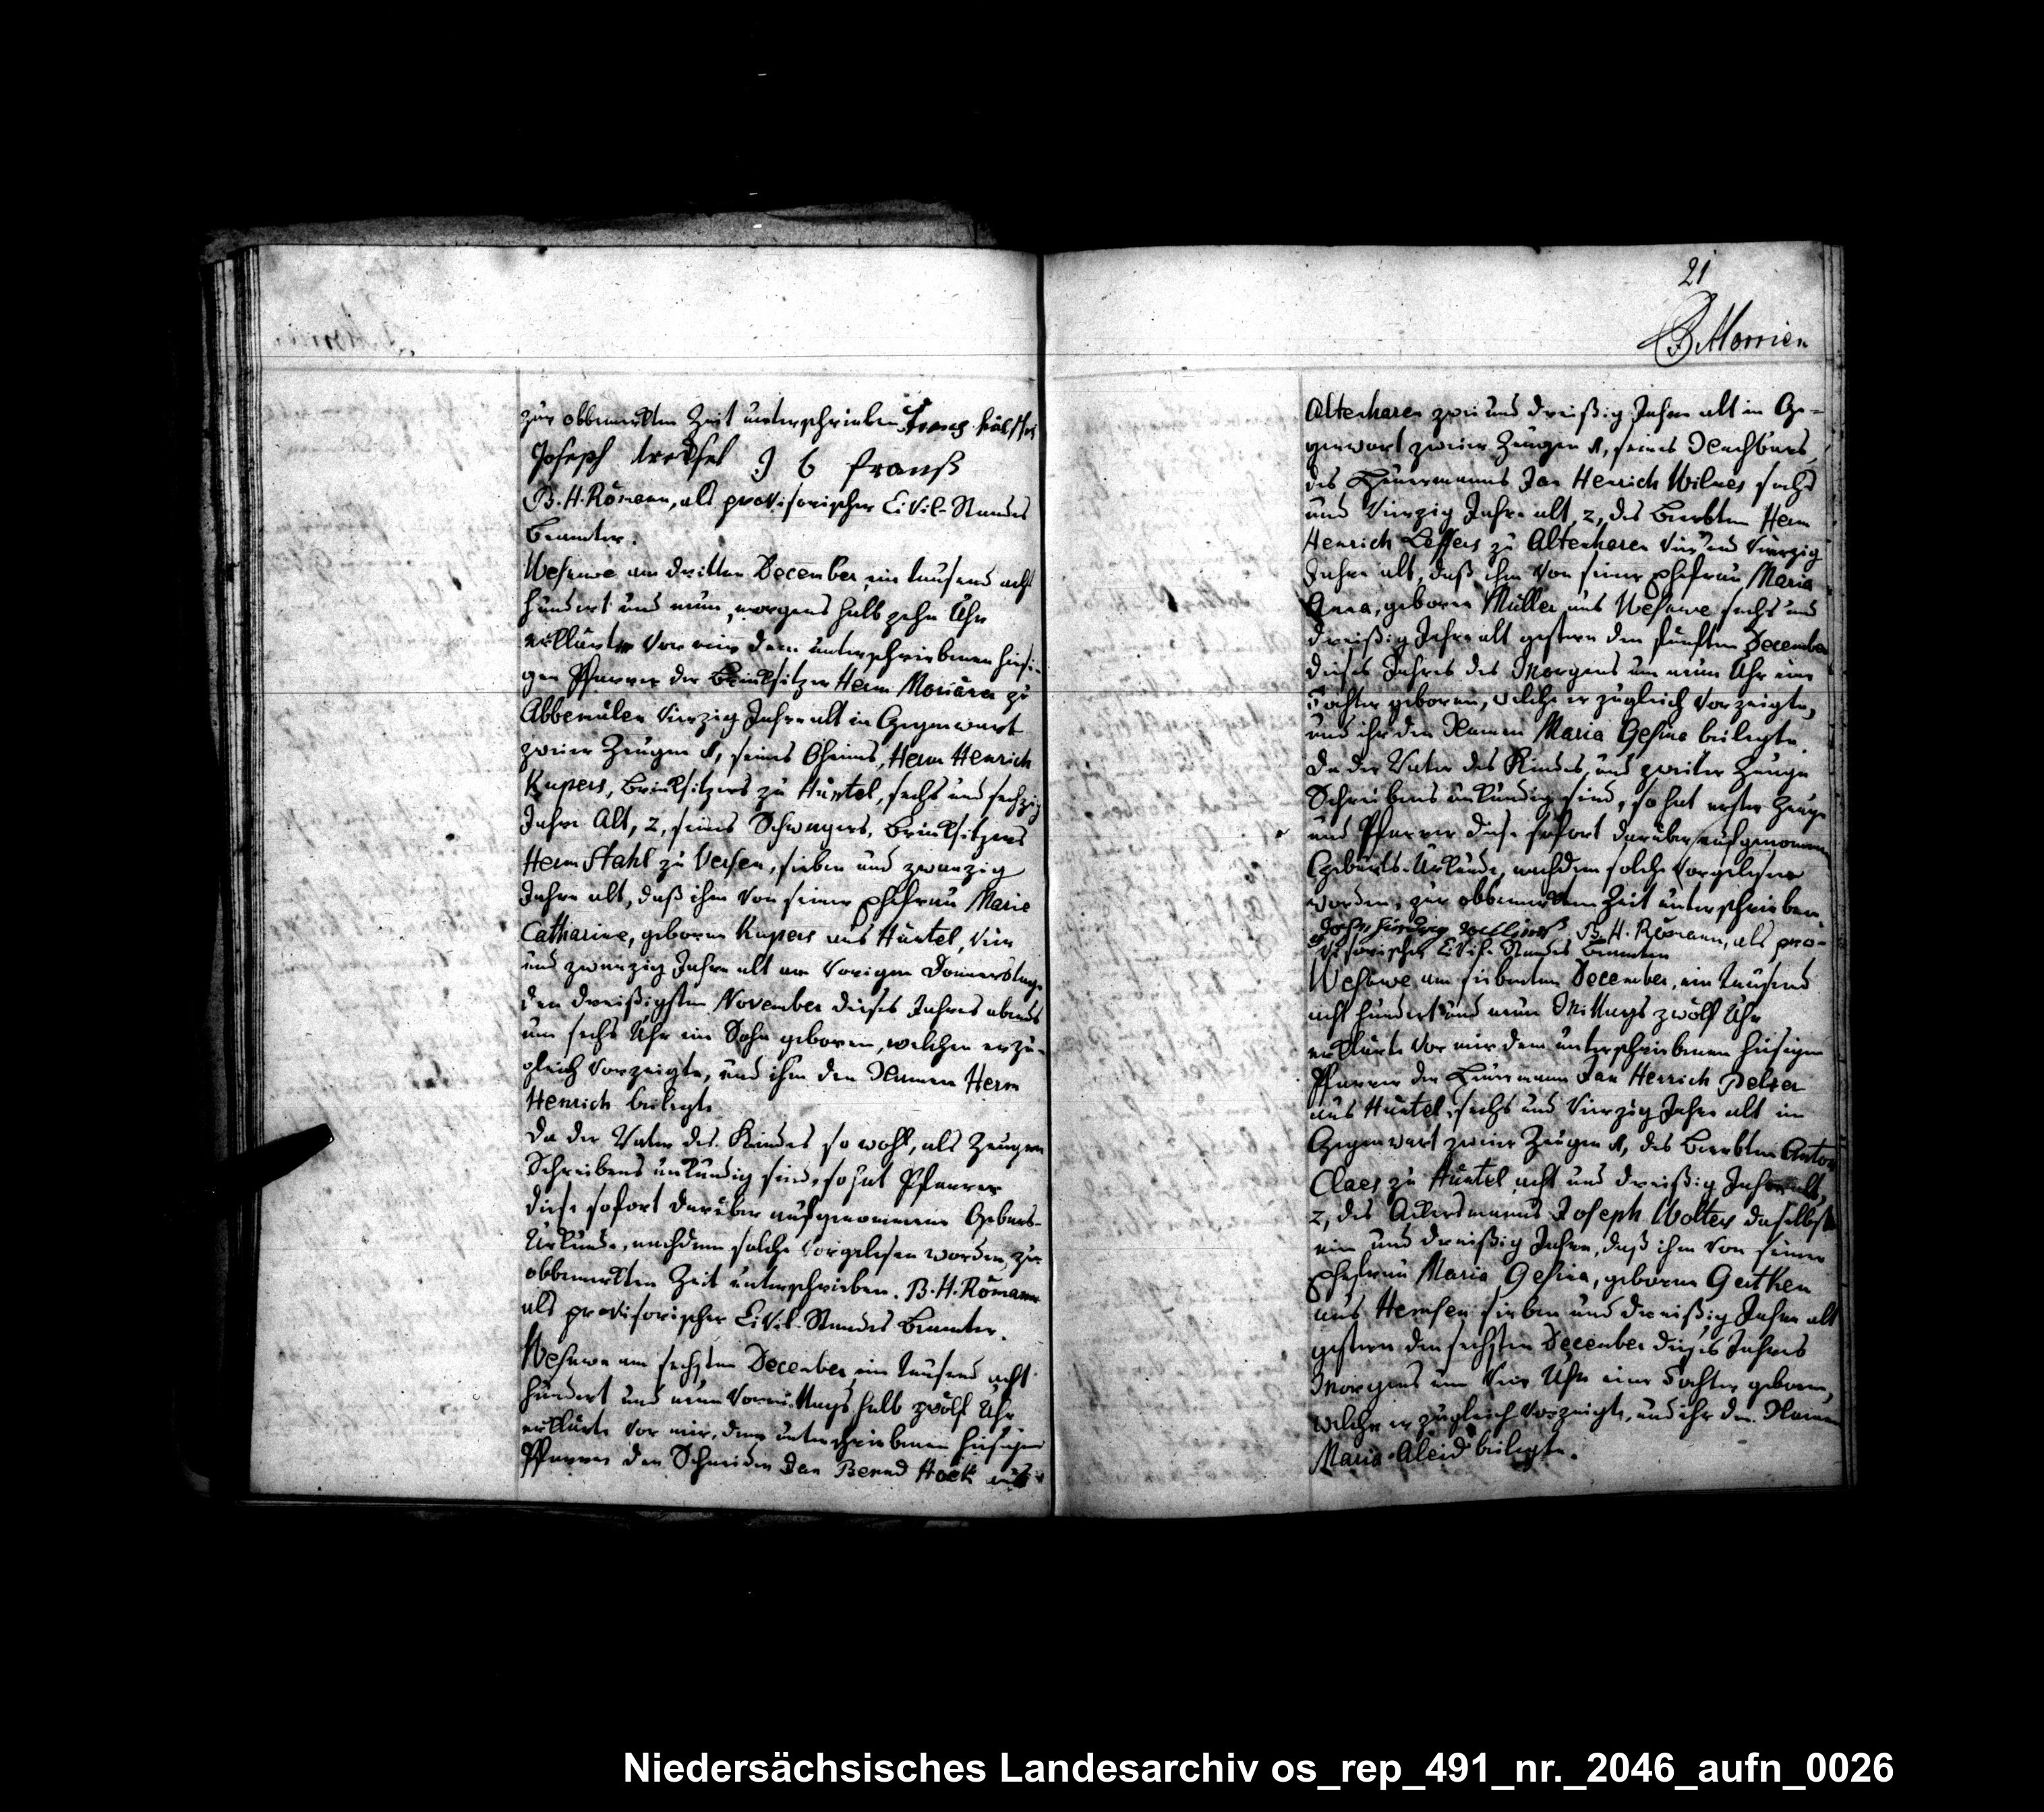 zur obbemerkten Zeit unterschrieben. Franz
Joseph J b frauß
B. H. Römann, als provisorischer Civil-Standes
Beamter.
Wesuwe am dritten December, ein tausend acht
hundert und neun, morgens halb zehn Uhr
erklärte vor mir dem unterschriebenen hiesi-
gen Pfarrer der Brinksitzer Herm zu
Abbemülen vierzig Jahre alt in Gegenwart
zweier Zeugen 1, seines Oheims, Herm Henrich
Kupers, Brinksitzers zu Huntel, sechs und sechzig
Jahre alt, 2, seines Schwagers, Brinksitzers
Herm Stahl zu Versen, sieben und zwanzig
Jahre alt, daß ihm von seiner Ehefrau Marie
Catharine, geborne Kupers aus Huntel, vier
und zwanzig Jahre alt am vorigen Donnerstage
den dreißigsten November dieses Jahres abends
um sechs Uhr ein Sohn geboren, welchen er zu-
gleich vorzeigte, und ihm den Namen Herm
Henrich beilegte
Da der Vater des Kindes so wohl, als Zeugen
Schreibens unkundig sind, so hat Pfarrer
diese sofort darüber aufgenommene Geburts-
Urkunde, nachdem solche vorgelesen worden, zur
obbemerkten Zeit unterschrieben. B. H. Römann
als provisorischer Civil-Standes Beamter.
Wesuwe am sechsten December, ein tausend acht
hundert und neun Vormittags halb zwölf Uhr
erklärte vor mir, dem unterschriebenen hiesigen
Pfarrer der Schneider Jan Bernd Hock aus
21
B Morrien
Altenharen zwei und dreißig Jahre alt in Ge-
genwart zweier Zeugen 1, seines Nachbars,
des Heuermanns Jan Henrich Wilnes sechs
und vierzig Jahre alt, 2, des Beerbten Herm
Henrich Leffers zu Altenharen vier und vierzig
Jahre alt, daß ihm von seiner Ehefrau, Maria
Anna, geborne Müller aus Wesuwe sechs und
dreißig Jahre alt gestern den fünften December
dieses Jahres des Morgens um neun Uhr eine
Tochter geboren, welche er zugleich vorzeigte,
und ihr den Namen Maria Gesina beilegte.
Da der Vater des Kindes, und zweiter Zeuge
Schreibens unkundig sind, so hat erster Zeuge
und Pfarrer diese sofort darüber aufgenommene
Geburts-Urkunde, nachdem solche vorgelesen
worden, zur obbemerkten Zeit unterschrieben.
B. H. Römann, als pro-
visorischer Civil-Standes Beamter
Wesuwe am siebenten December, ein tausend
acht hundert und neun Mittags zwölf Uhr
erklärte vor mir dem unterschriebenen hiesigen
Pfarrer der Heuermann Jan Henrich Pelser
aus Huntel, sechs und vierzig Jahre alt in
Gegenwart zweier Zeugen 1, des Beerbten Anton
Claes zu Huntel, acht und dreißig Jahre alt,
2, des Ackersmanns Joseph Wolters daselbst
ein und dreißig Jahre, daß ihm von seiner
Ehefrau Maria Gesina, geborne Geitken
aus Hemsen sieben und dreißig Jahre alt
gestern den sechsten December dieses Jahres
Morgens um vier Uhr eine Tochter geboren,
welche er zugleich vorzeigte, und ihr den Namen
Maria Aleid beilegte.
Niedersächsisches Landesarchiv os_rep_491_nr._2046_aufn_0026